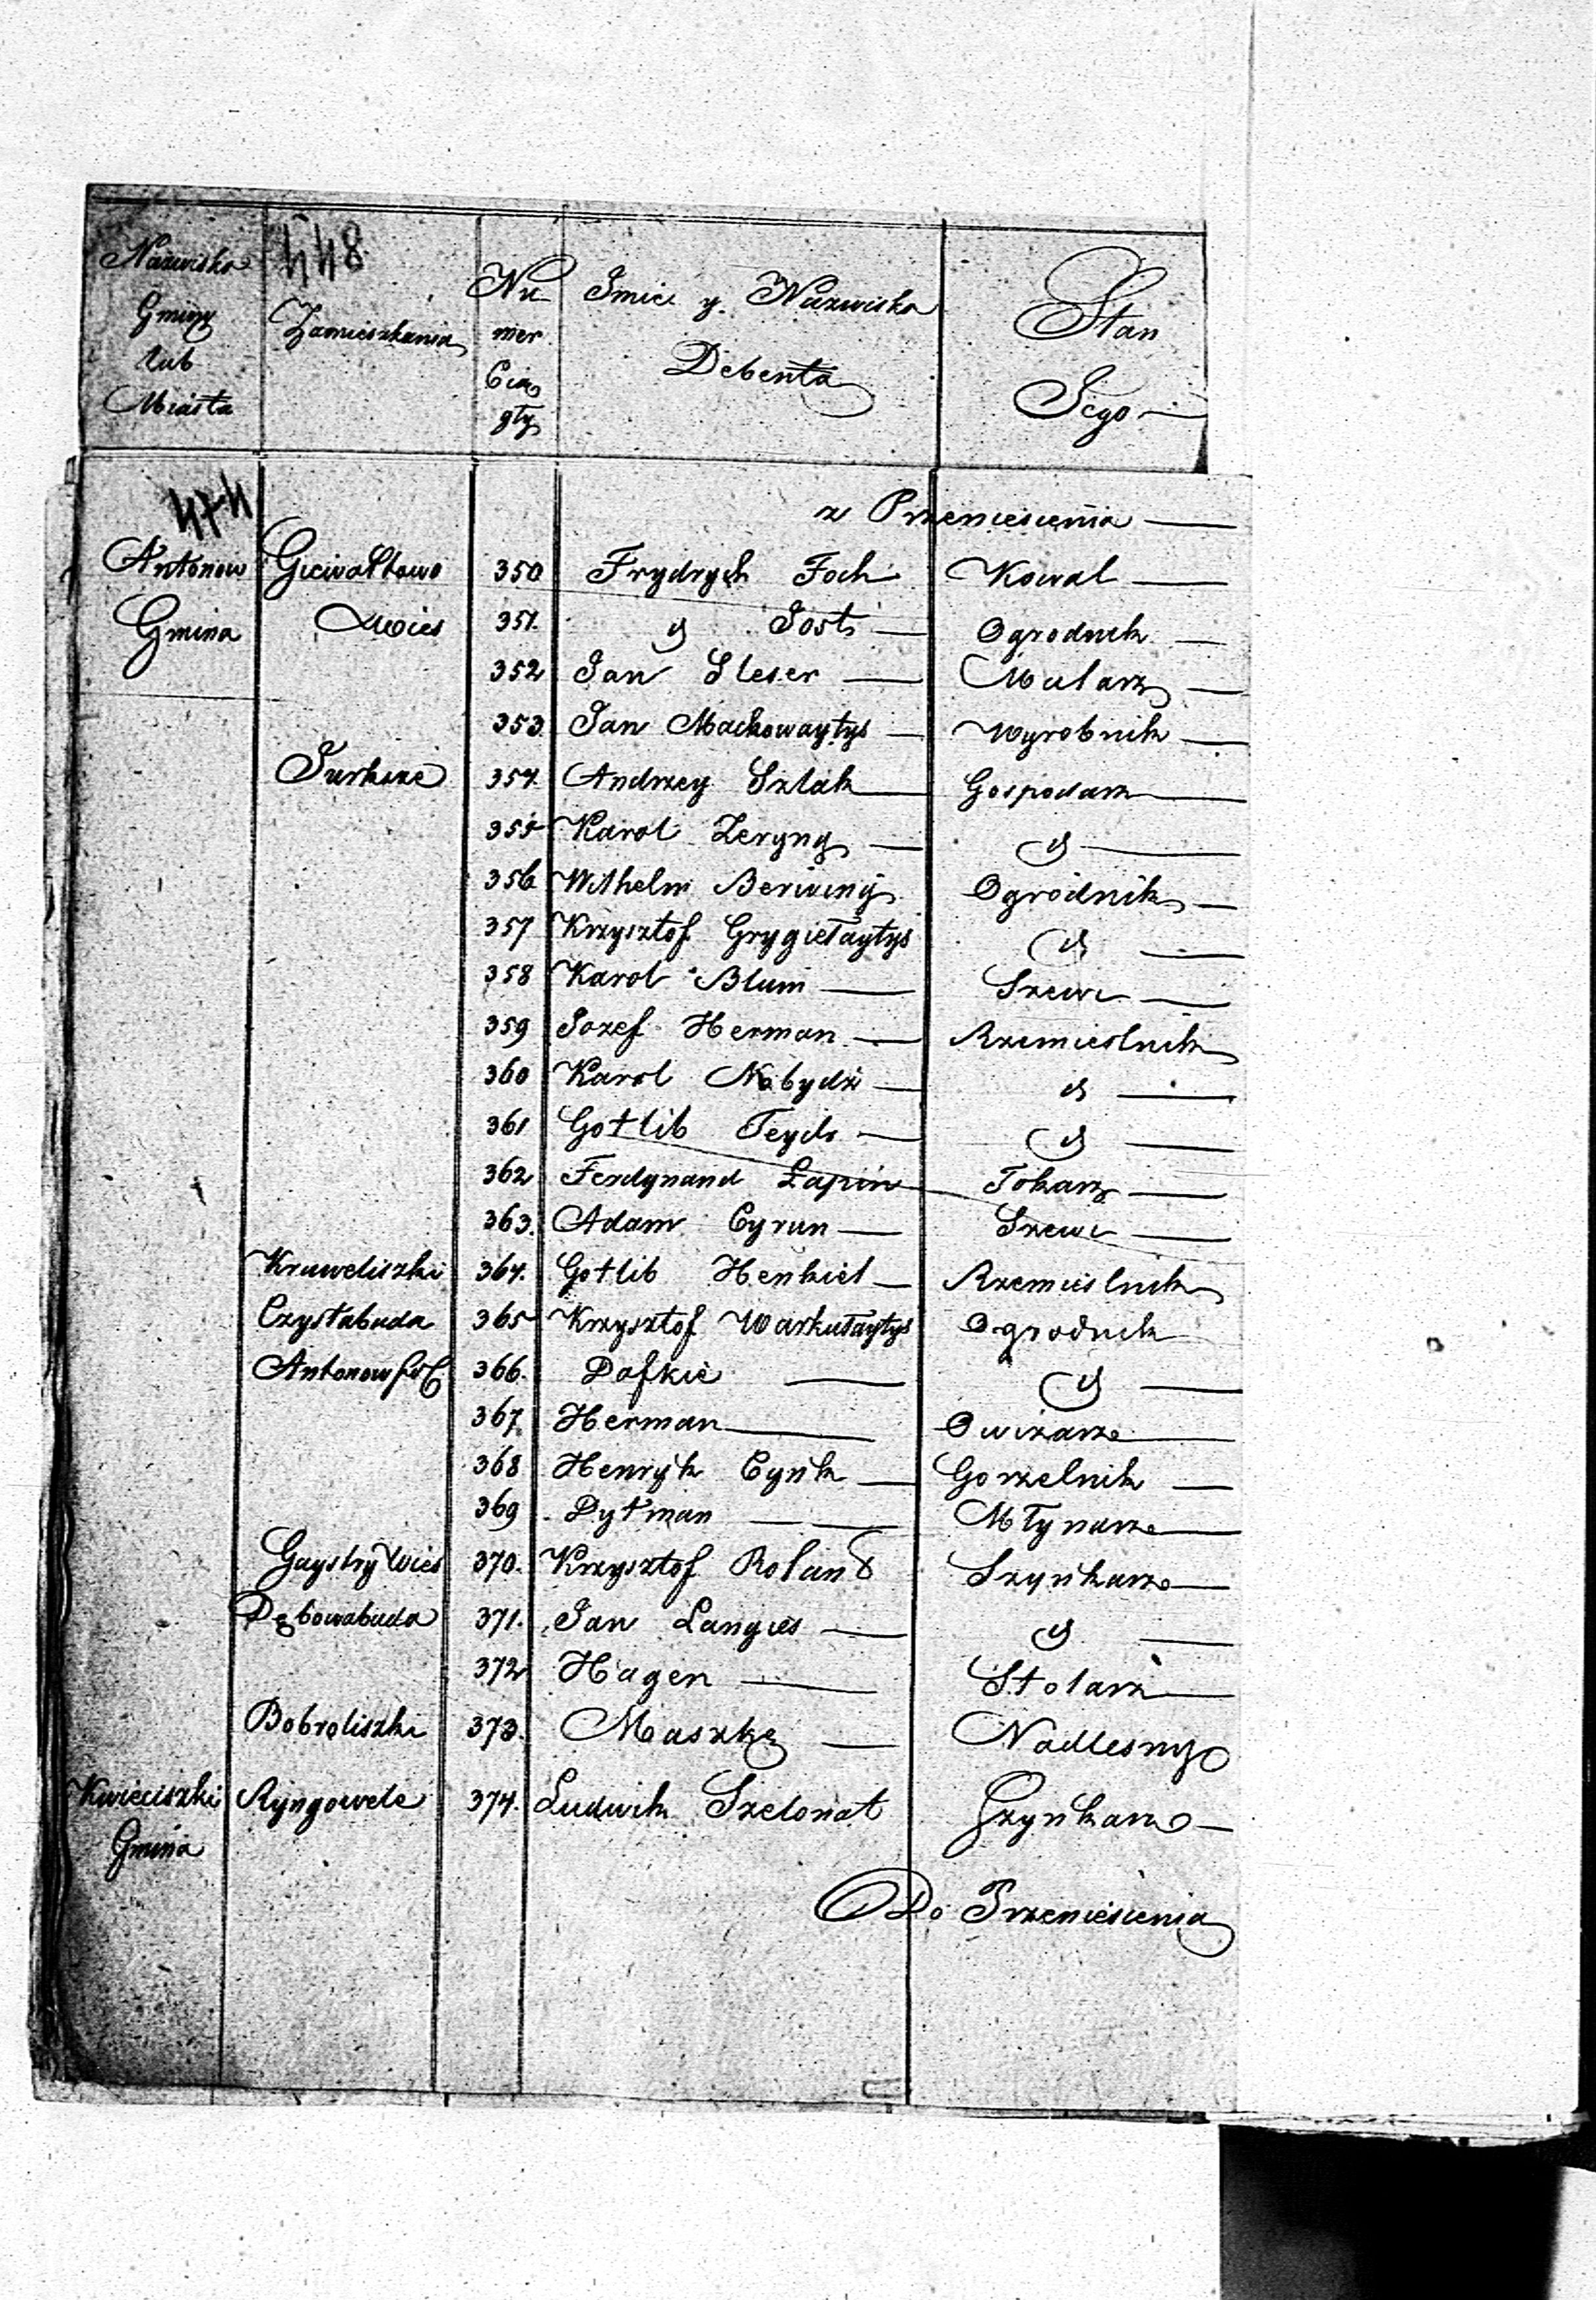 448
Nazwisko Gminy lub Miasta
Zamieszkania
Numer Ciągły
Imie y Nazwisko Debenta
Stan Jego
474
z Przeniesienia
Antonow Giewałtowo 350 Frydrych Foch Kowal
Gmina Wies 351. " Jost Ogrodnik
352 Jan Sleser Mularz
353 Jan Mackowaytys Wyrobnik
Surkine 354. Andrzey Szlak Gospodarz
355 Karol Zeryng "
356 Wilhelm Ogrodnik
357 Krzysztof Grygiełaytys "
358 Karol Blum Szewc
359 Jozef Herman Rzemieslnik
360 Karol "
361 Gotlib Teyds "
362 Ferdynand Łapin Tokarz
363. Adam Cyrun Szewc
Kruweliszki 364. Gotlib Henkiel Rzemieslnik
Czystabuda 365 Krzysztof Warkułaytys Ogrodnik
Antonow fol 366. Dofkie "
367. Herman Owczarz
368 Henryk Cynk Gorzelnik
369 Dytman Młynarz
Gaystry Wies 370. Krzysztof Roland Szynkarz
Dębowabuda 371. Jan Langies "
372 Hagen Stolarz
Bobroliszki 373. Maszke Nadlesny
Kwieciszki Ryngowele 374. Ludwik Szelonat Szynkarz
Gmina
Do Przeniesienia